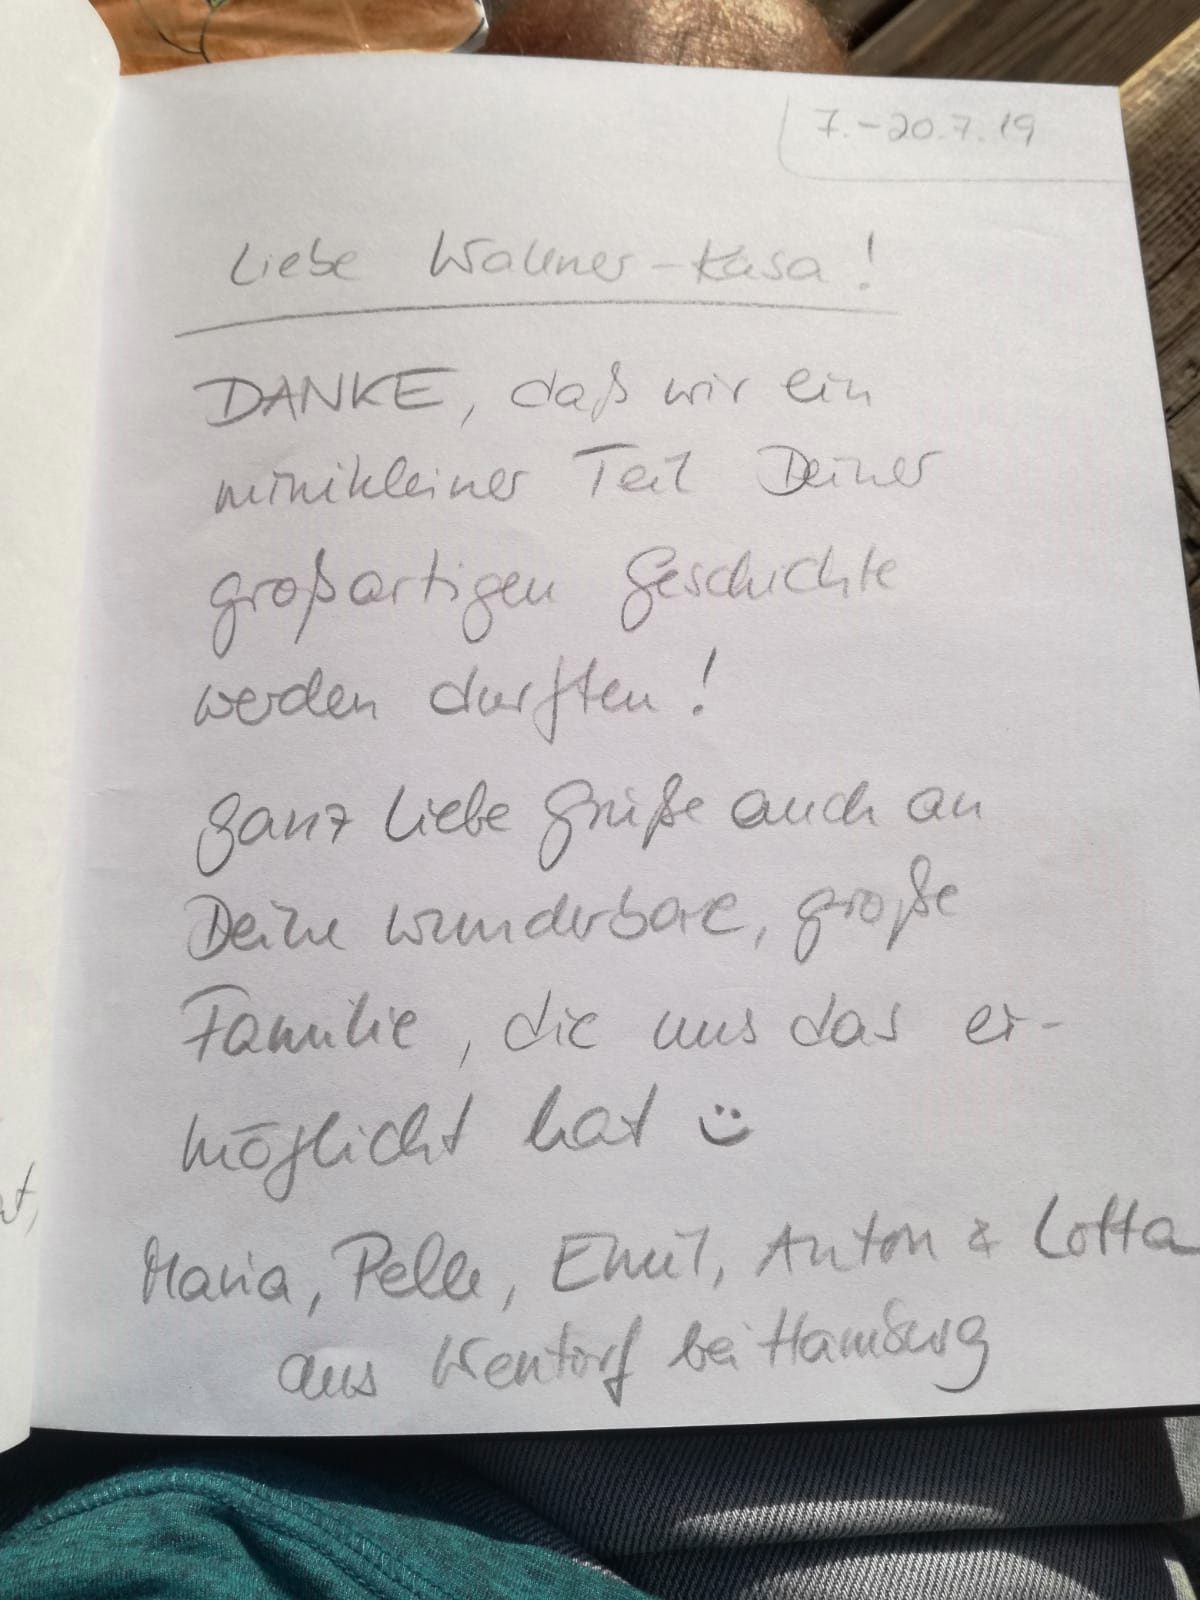 7.-20.7.19
Liebe Wallner-Kasa!
DANKE, daß wir ein
minikleiner Teil Deiner
großartigen Geschichte
werden durften!
Ganz liebe Grüße auch an
Deine wunderbare, große
Familie, die uns das er-
möglicht hat
Maria, Pelle, Emil, Anton & Lotta
aus Wentorf bei Hamburg